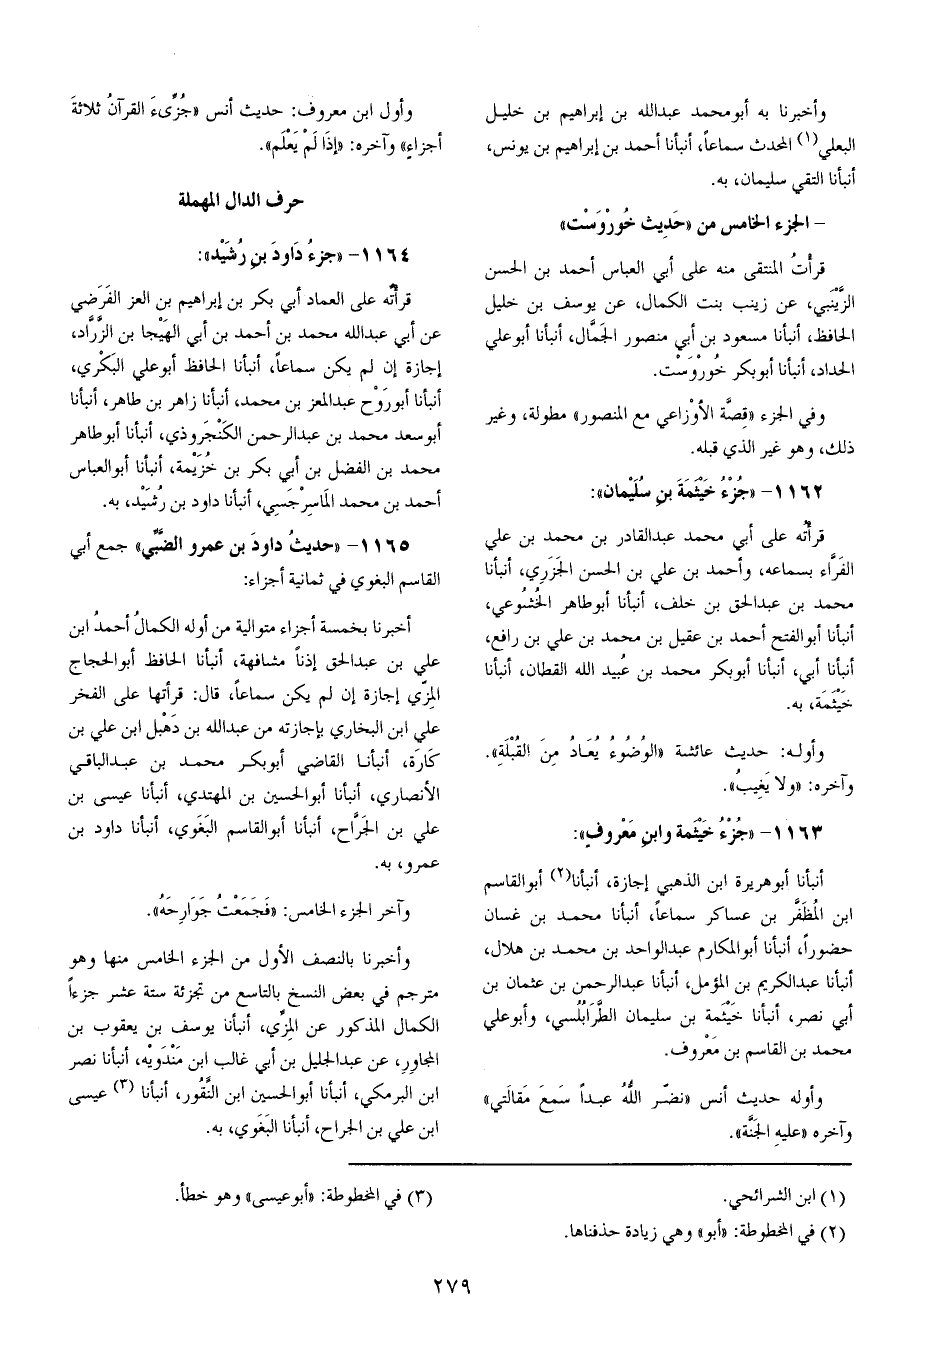 وأخبرنا به أبومحمد عبدالله بن إبراهيم بن خليل
البعلي(١) المحدث سماعاً، أنبأنا أحمد بن إبراهيم بن يونس،
أنبأنا التقي سليمان، به.
– الجزء الخامس من «حَديث خُورْوَسْت»
قرأتُ المنتقى منه على أبي العباس أحمد بن الحسن
الزَّيْنبي، عن زينب بنت الكمال، عن يوسف بن خليل
الحافظ، أنبأنا مسعود بن أبي منصور الجَمَّال، أنبأنا أبوعلي
الحداد، أنبأنا أبوبكر خُورْوَسْت.
وفي الجزء «قِصَّة الأوْزاعي مع المنصور» مطولة، وغير
ذلك، وهو غير الذي قبله.
١١٦٢– «جُزْءُ خَيْثمَةَ بنِ سُلَيْمان»:
قرأتُه على أبي محمد عبدالقادر بن محمد بن علي
الفَرَّاء بسماعه، وأحمد بن علي بن الحسن الجَزَري، أنبأنا
محمد بن عبدالحق بن خلف، أنبأنا أبوطاهر الخُشُوعي،
أنبأنا أبوالفتح أحمد بن عقيل بن محمد بن علي بن رافع،
أنبأنا أبي، أنبأنا أبوبكر محمد بن عُبيد الله القطان، أنبأنا
خَيْثَمَة، به.
وأوله: حديث عائشة «الوُضُوءُ يُعَادُ مِنَ القُبْلَةِ».
وآخره: «ولا يَغِيبُ».
١١٦٣– «جُزْءُ خَيْثَمة وابنِ مَعْروفٍ»:
أنبأنا أبوهريرة ابن الذهبي إجازة، أنبأنا(٢) أبوالقاسم
ابن المُظَفَّر بن عساكر سماعاً، أنبأنا محمد بن غسان
حضوراً، أنبأنا أبوالمكارم عبدالواحد بن محمد بن هلال،
أنبأنا عبدالكريم بن المؤمل، أنبأنا عبدالرحمن بن عثمان بن
أبي نصر، أنبأنا خَيْثمة بن سليمان الطَّرَابُلُسي، وأبوعلي
محمد بن القاسم بن مَعْروف.
وأوله حديث أنس «نضّر اللَّهُ عبداً سَمَعَ مَقالَتي»
وآخره «عليهِ الجَنَّة».
وأول ابن معروف: حديث أنس «جُزِّىءَ القرآنُ ثلاثةَ
أجزاءٍ» وآخره: «إذَا لَمْ يَعْلَم».
حرف الدال المهملة
١١٦٤– «جزءُ دَاودَ بنِ رُشَيْد»:
قرأتُه على العماد أبي بكر بن إبراهيم بن العز الفَرَضي
عن أبي عبدالله محمد بن أحمد بن أبي الهَيْجا بن الزَّرَّاد،
إجازة إن لم يكن سماعاً، أنبأنا الحافظ أبوعلي البَكْري،
أنبأنا أبورَوْح عبدالمعز بن محمد، أنبأنا زاهر بن طاهر، أنبأنا
أبوسعد محمد بن عبدالرحمن الكَنْجَروذي، أنبأنا أبوطاهر
محمد بن الفضل بن أبي بكر بن خُزَيْمة، أنبأنا أبوالعباس
أحمد بن محمد المَاسِرْجَسي، أنبأنا داود بن رُشَيْد، به.
١١٦٥– «حديثُ داودَ بن عمرو الضَّبِّي» جمع أبي
القاسم البغوي في ثمانية أجزاء:
أخبرنا بخمسة أجزاء متوالية من أوله الكمالُ أحمدُ ابن
علي بن عبدالحق إذناً مشافهة، أنبأنا الحافظ أبوالحجاج
المِزّي إجازة إن لم يكن سماعاً، قال: قرأتها على الفخر
علي ابن البخاري بإجازته من عبدالله بن دَهْبَل ابن علي بن
كَارَة، أنبأنا القاضي أبوبكر محمد بن عبدالباقي
الأنصاري، أنبأنا أبوالحسين بن المهتدي، أنبأنا عيسى بن
علي بن الجَرَّاح، أنبأنا أبوالقاسم البَغَوي، أنبأنا داود بن
عمرو، به.
وآخر الجزء الخامس: «فَجَمَعْتُ جَوَارِحَهُ».
وأخبرنا بالنصف الأول من الجزء الخامس منها وهو
مترجم في بعض النسخ بالتاسع من تجزئة ستة عشر جزءاً
الكمال المذكور عن المِزِّي، أنبأنا يوسف بن يعقوب بن
المجاوِرِ، عن عبدالجليل بن أبي غالب ابن مَنْدَويْه، أنبأنا نصر
ابن البرمكي، أنبأنا أبوالحسين ابن النَّقُور، أنبأنا (٣) عيسى
ابن علي بن الجراح، أنبأنا البَغَوي، به.
(١) ابن الشرائحي.
(٢) في المخطوطة: «أبو» وهي زيادة حذفناها.
(٣) في المخطوطة: «أبوعيسى» وهو خطأ.
٢٧٩